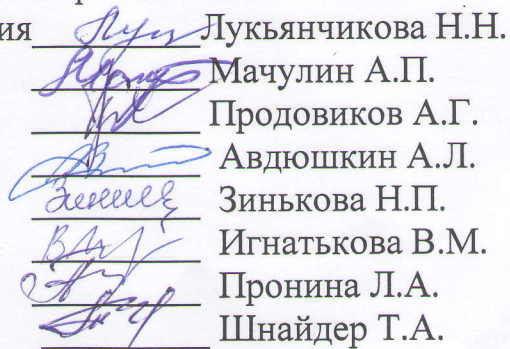 ия Лукьянчикова Н.Н.
Мачулин А.П.
Продовиков А.Г.
Авдюшкин А.Л.
Зинькова Н.П.
Игнатькова В.М.
Пронина Л.А.
Шнайдер Т.А.